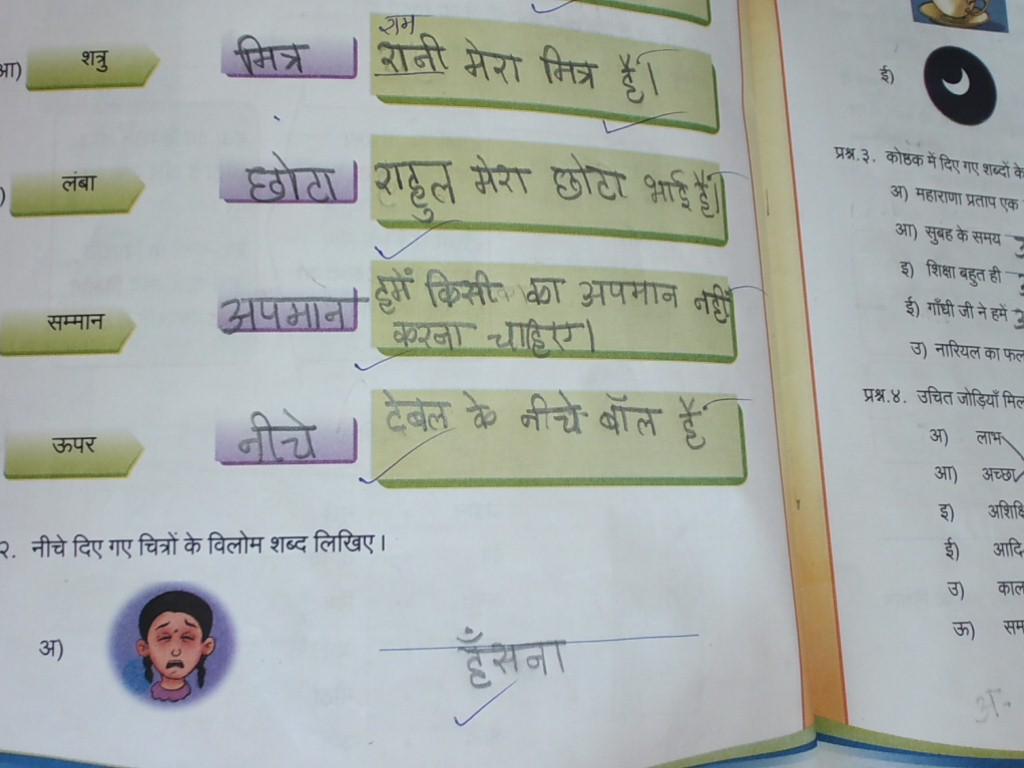 राम
आ) शत्रु मित्र रानी मेरा मित्र है।
) लंबा छोटा राहुल मेरा छोटा भाई है।
सम्मान अपमान हमें किसी का अपमान नहीं
करना चाहिए।
ऊपर नीचे टेबल के नीचे बॉल है
२. नीचे दिए गए चित्रों के विलोम शब्द लिखिए।
अ) हँसना
ई)
प्रश्न.३. कोष्ठक में दिए गए शब्दों के
अ) महाराणा प्रताप एक
आ) सुबह के समय
इ) शिक्षा बहुत ही
ई) गाँधी जी ने हमें
उ) नारियल का फल
प्रश्न.४. उचित जोड़ियाँ मिल
अ) लाभ
आ) अच्छा
इ) अशिक्षि
ई) आदि
उ) काल
ऊ) सम